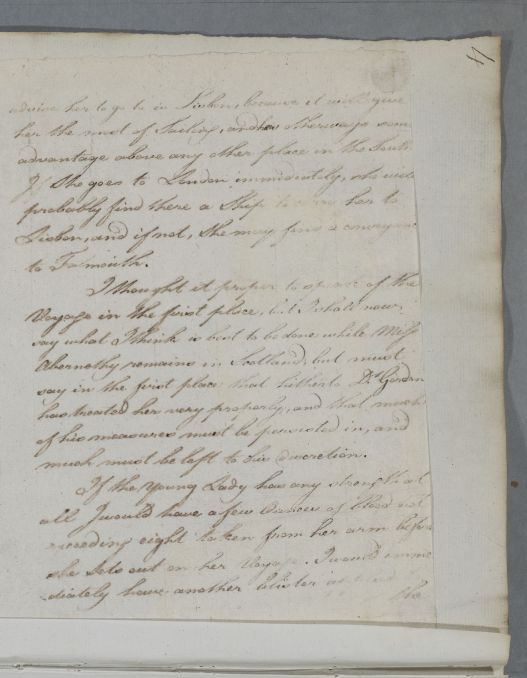 4
advise her to go to is Lisbon, because it will give
her the most of Sailing, and has otherways som
advantage above any other place in the South.
If She goes to London immediately, she will
probably find there a Ship to carry her to
Lisbon, and if not, She may find a conveyance
to Falmouth.
I thought it proper to speak of the
Voyage in the first place, but I shall now
say what I think is best to be done while Miss
Abernethy remains in Scotland, but must
say in the first place that hitherto Dr. Gordon
has treated her very properly, and that much
of his measures must be persisted in, and
much must be left to his discretion.
If the Young Lady has any strength at
all I would have a few Ounces of Blood not
exceeding eight taken from her arm before
she Sets out on her Voyage. I would imme
diately have another blister
the